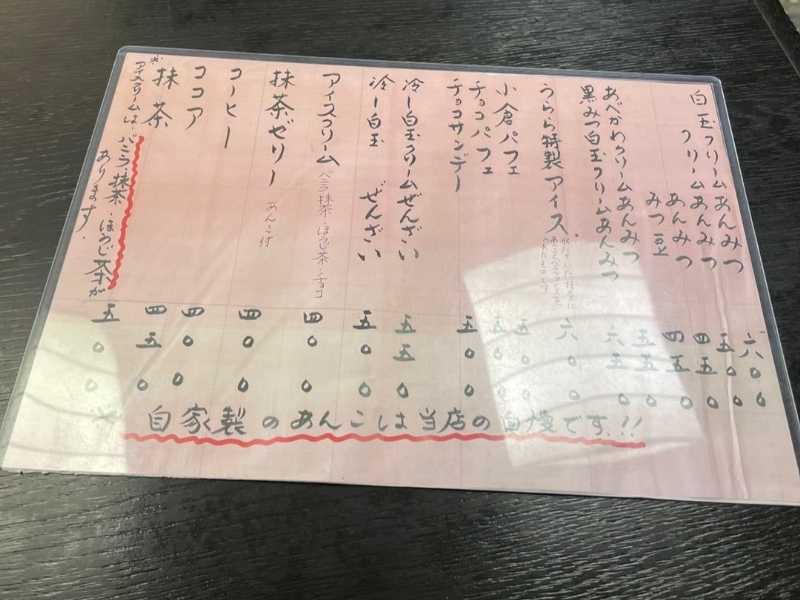 白玉クリームあんみつ 六〇〇
クリームあんみつ 五〇〇
あんみつ 四五〇
みつ豆 四五〇
あべかわクリームあんみつ 五五〇
黒みつ白玉クリームあんみつ 六五〇
うらら特製アイス 六〇〇
小倉パフェ 五〇
チョコパフェ 五
チョコサンデー 五〇〇
冷し白玉クリームぜんざい 五五〇
冷し白玉ぜんざい 五〇〇
アイスクリーム バニラ・抹茶・ほうじ茶・チョコ 四〇〇
抹茶ゼリー あんこ付 四〇〇
コーヒー 四〇〇
ココア 四五〇
抹茶 五〇〇
※アイスクリームは、バニラ・抹茶・ほうじ茶が
あります。
※自家製のあんこは当店の自慢です!!